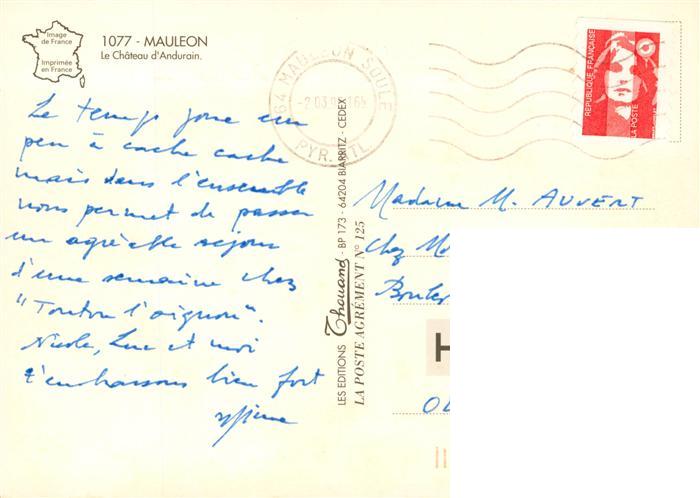 Image
de France
Imprimée
en France
1077 - MAULEON
Le Château d'Andurain.
64 MAULEON SOULE
PYR. ATL.
RÉPUBLIQUE FRANÇAISE
LA POSTE
Le temps joue un
peu à cache cache
mais dans l'ensemble
nous permet de passer
un agréable séjour
d'une semaine chez
"Tonton l'oignon".
Nicole, Luc et moi
t'embrassons bien fort
LES EDITIONS Thouand - BP 173 - 64204 BIARRITZ - CEDEX
LA POSTE AGRÉMENT N° 125
Madame M. AUVERT
Chez
H